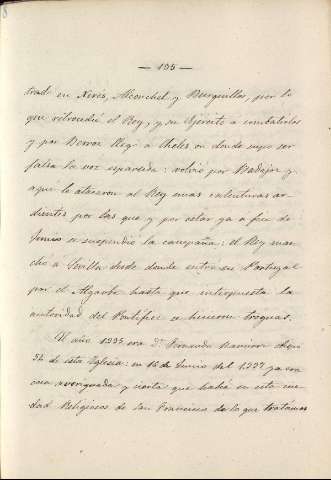 — 135 —
trado en Xeres, Alconchel y Burguillos, por lo
que retrocedió el Rey, y su ejército a combatirlos
y por Derroz llegó a Cheles en donde supo ser
falsa la voz esparcida: volvió por Badajoz y
aquí le atacaron al Rey unas calenturas ar-
dientes por las que y por estar ya a fin de
Junio se suspendió la campaña: el Rey mar-
chó a Sevilla desde donde entró en Portugal
por el Algarbe hasta que interpuesta la
autoridad del Pontífice se hicieron treguas.
El año 1335 era Dn. Bernardo Ramirez Obispo
32 de esta Iglesia: en 16 de Junio del 1337 ya era
cosa averiguada y cierta que había en esta ciu-
dad Religiosos de San Francisco de lo que tratamos